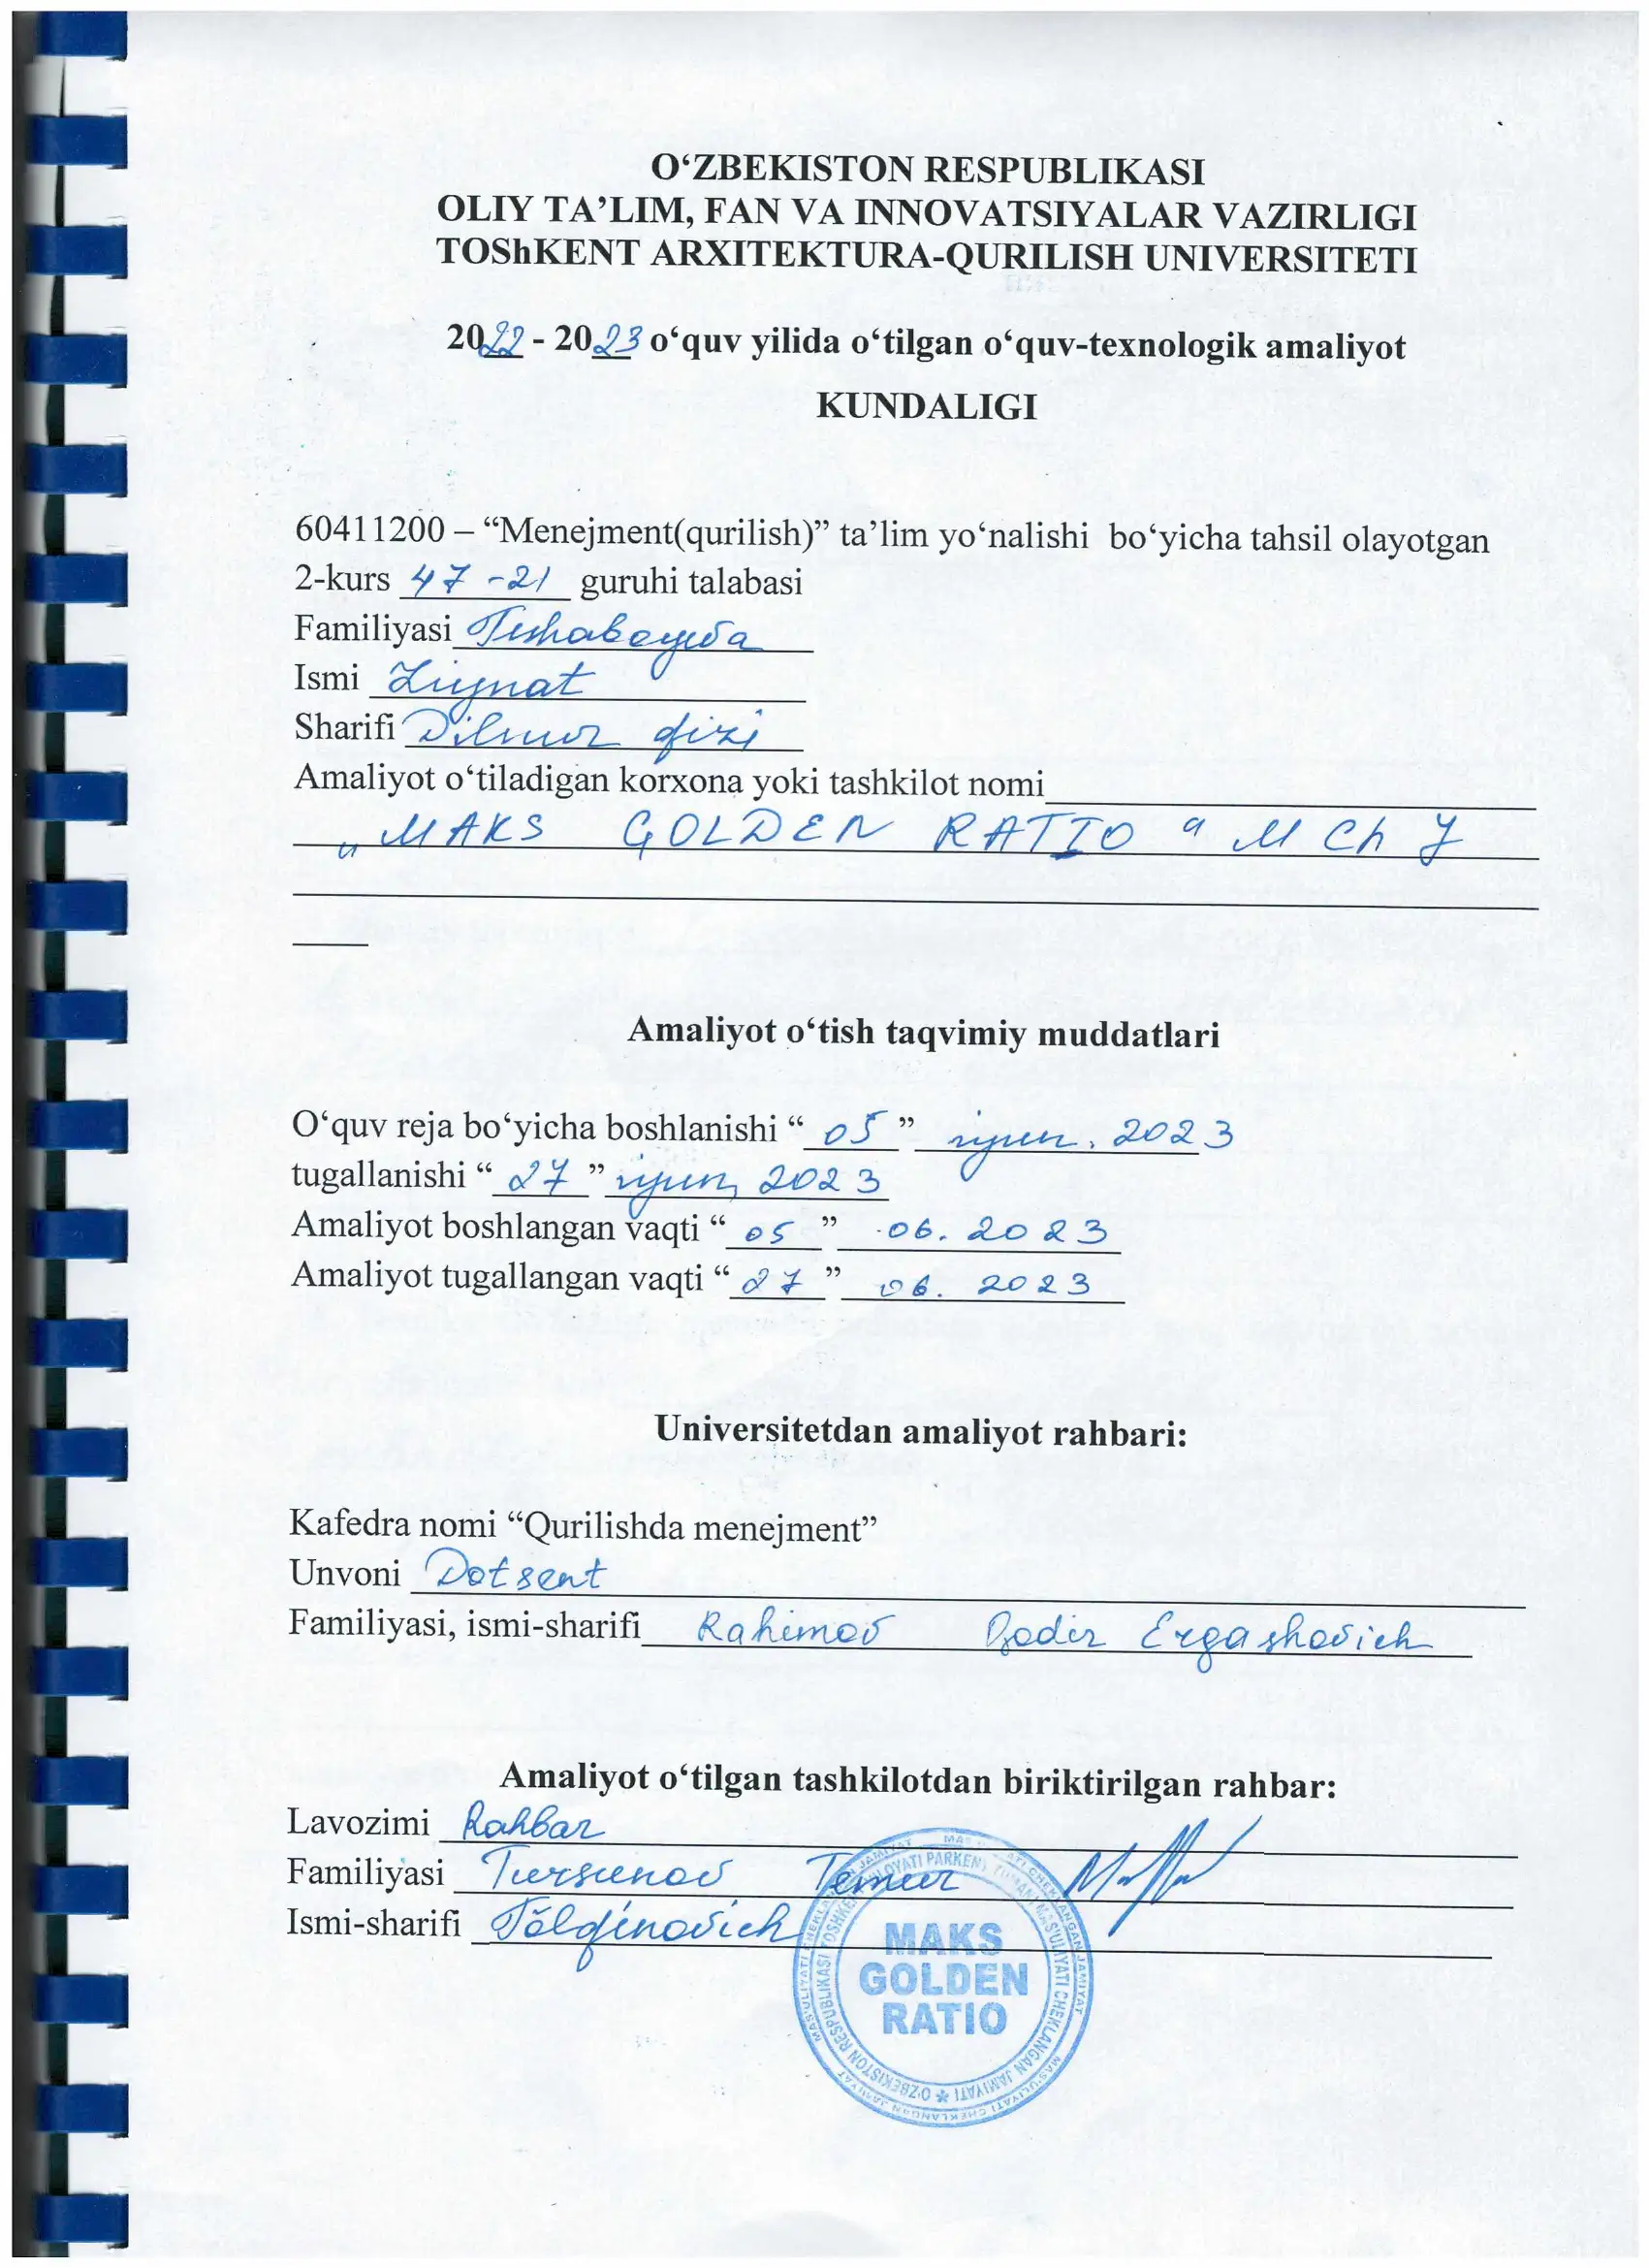 O‘ZBEKISTON RESPUBLIKASI
OLIY TA’LIM, FAN VA INNOVATSIYALAR VAZIRLIGI
TOShKENT ARXITEKTURA-QURILISH UNIVERSITETI
2022 - 2023 o‘quv yilida o‘tilgan o‘quv-texnologik amaliyot
KUNDALIGI
60411200 – “Menejment(qurilish)” ta’lim yo‘nalishi bo‘yicha tahsil olayotgan
2-kurs 47-21 guruhi talabasi
Familiyasi Teshaboyeva
Ismi Ziynat
Sharifi Dilmur qizi
Amaliyot o‘tiladigan korxona yoki tashkilot nomi
„MAKS GOLDEN RATIO“ MChJ
Amaliyot o‘tish taqvimiy muddatlari
O‘quv reja bo‘yicha boshlanishi “ 05 ” iyun. 2023
tugallanishi “ 27 ” iyun, 2023
Amaliyot boshlangan vaqti “ 05 ” .06. 2023
Amaliyot tugallangan vaqti “ 27 ” 06. 2023
Universitetdan amaliyot rahbari:
Kafedra nomi “Qurilishda menejment”
Unvoni Dotsent
Familiyasi, ismi-sharifi Rahimov Qodir Ergashovich
Amaliyot o‘tilgan tashkilotdan biriktirilgan rahbar:
Lavozimi Rahbar
Familiyasi Tursunov Temur
Ismi-sharifi Tólqinovich
MAKS
GOLDEN
RATIO